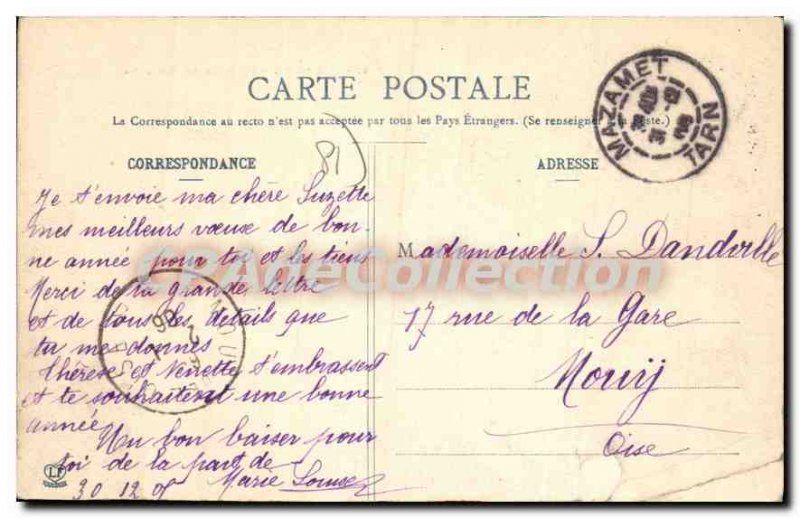 CARTE POSTALE
La Correspondance au recto n'est pas acceptée par tous les Pays Étrangers. (Se renseigner à la Poste.)
MAZAMET
TARN
81)
CORRESPONDANCE
Je t'envoie ma chère Suzette
mes meilleurs vœuse de bon-
ne année pour toi et les tiens
Merci de ta grande lettre
et de tous les détails que
tu me donnes
Thérèse et Nenette t'embrassent
et te souhaitent une bonne
année
Un bon baiser pour
toi de la part de
30 12 05 Marie Louise
ADRESSE
Mademoiselle S. Dandville
17 rue de la Gare
Mouÿ
Oise
Collection